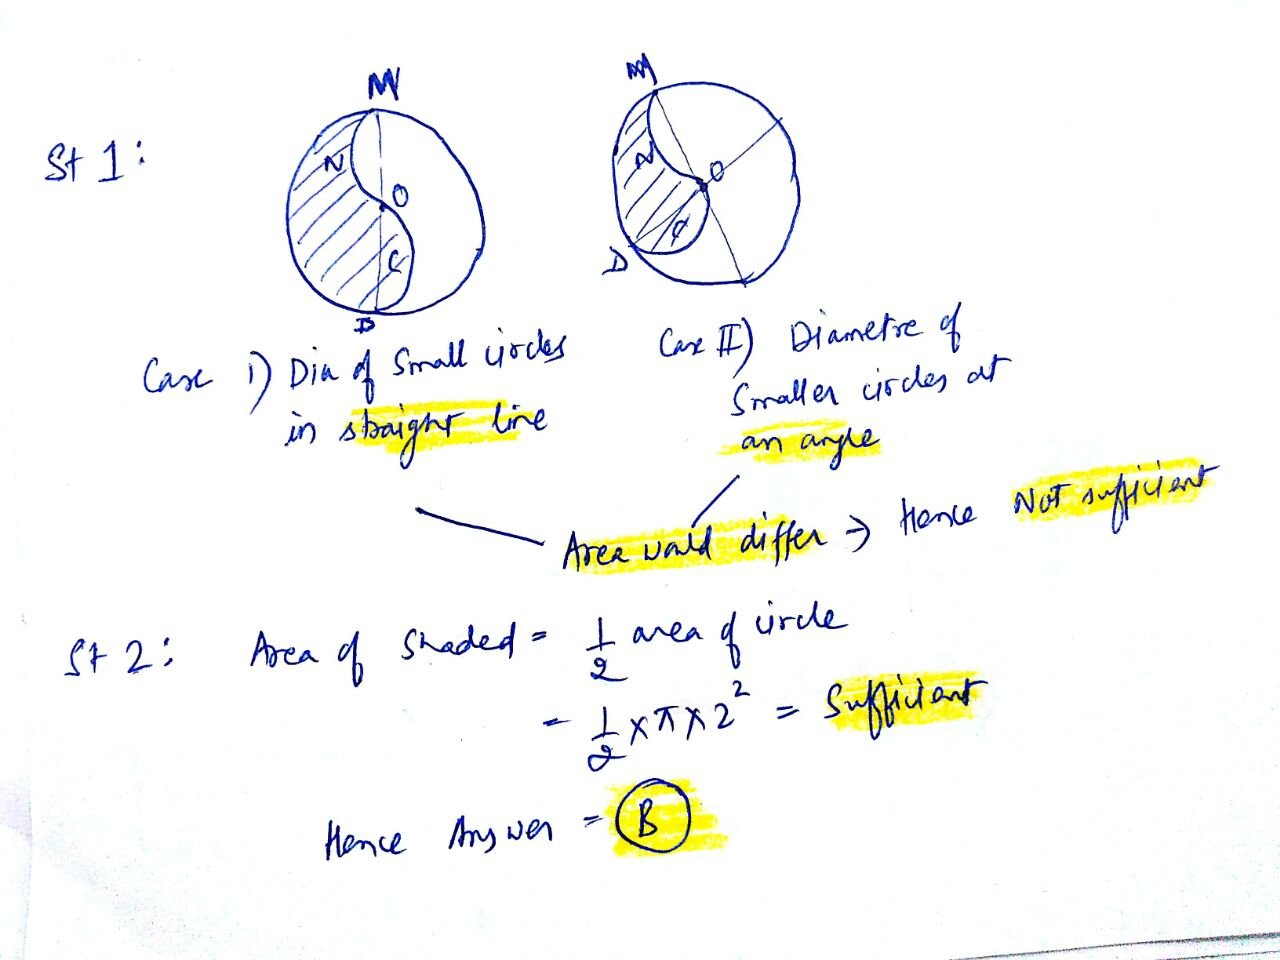 St 1:
M
N
O
C
D
M
N
O
C
D
Case i) Dia of Small circles
in straight line
Case II) Diametre of
Smaller circles at
an angle
Area would differ → Hence Not sufficient
St 2: Area of Shaded = 1/2 area of circle
= 1/2 x π x 2² = Sufficient
Hence Answer = B